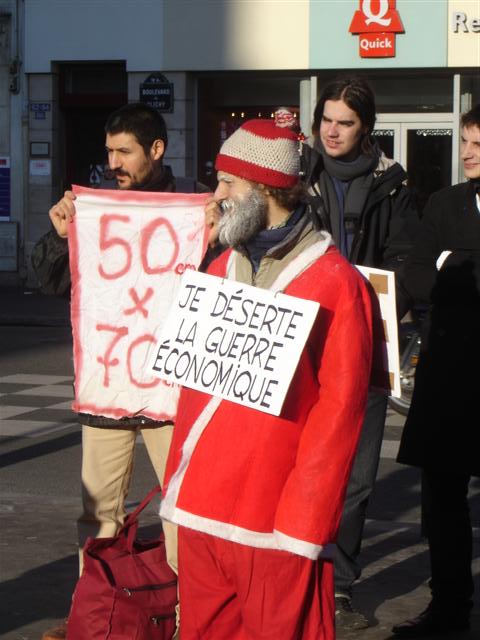 Q
Quick
Re
BOULEVARD
DE CLICHY
50 cm
x
70 cm
JE DÉSERTE
LA GUERRE
ÉCONOMIQUE